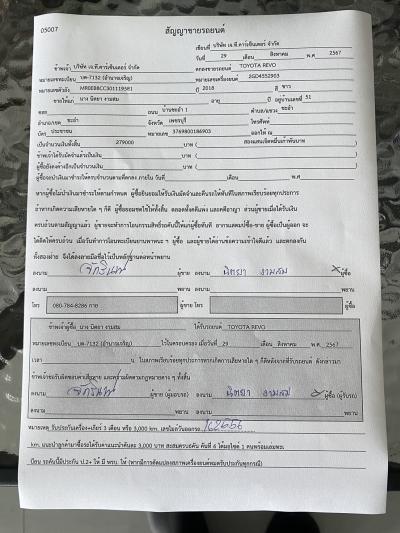 05007
สัญญาขายรถยนต์
เขียนที่ บริษัท เจ.ที.คาร์เซ็นเตอร์ จำกัด
วันที่ 29 เดือน สิงหาคม พ.ศ 2567
ข้าพเจ้า บริษัท เจ.ที.คาร์เซ็นเตอร์ จำกัด ตกลงขายรถยนต์ TOYOTA REVO
หมายเลขทะเบียน บต-7132 (อำนาจเจริญ) หมายเลขเครื่องยนต์ 2GD4552903
หมายเลขตัวถัง ปี 2018 สี ขาว
ขายให้แก่ นาง นิตยา งามสม อายุ ปี อยู่บ้านเลขที่ 51
ซอย ถนน บ้านชะอำ 1 ตำบล/แขวง ชะอำ
อำเภอ/เขต ชะอำ จังหวัด เพชรบุรี โทรศัพท์
บัตร ประชาชน หมายเลข 3769800186903 ออกให้ ณ
เป็นจำนวนเงินทั้งสิ้น 279000 บาท ( สองแสนเจ็ดหมื่นเก้าพันบาท
ข้าพเจ้าได้รับมัดจำแล้วเป็นเงิน บาท (
ผู้ซื้อยังคงค้างอีกเป็นจำนวนเงิน บาท (
ผู้ซื้อจะนำเงินมาชำระให้ครบจำนวนตามที่ตกลง ภายใน วันที่ เดือน พ.ศ.
หากผู้ซื้อไม่นำเงินมาชำระให้ตามกำหนด ผู้ซื้อยินยอมให้ริบเงินมัดจำและคืนรถให้ทันทีในสภาพเรียบร้อยทุกประการ
ถ้าหากเกิดความเสียหายใด ๆ ก็ดี ผู้ซื้อยอมชดใช้ให้ทั้งสิ้น ตลอดทั้งคดีแพ่ง และคดีอาญา ส่วนผู้ขายเมื่อได้รับเงิน
ครบถ้วนตามสัญญาแล้ว ผู้ขายจะทำการโอนกรรมสิทธิ์รถคันนี้ให้แก่ผู้ซื้อทันที
ได้ติดไฟครบถ้วน
ทั้งสองฝ่าย จึงได้ลงลายมือชื่อไว้เป็นหลักฐานต่อหน้าพยาน
ลงนาม จักรินทร์ ผู้ขาย นิตยา งามสม ผู้ซื้อ
ลงนาม พยาน ลงนาม พยาน
โทร 080-784-8286 กาย ผู้ขาย โทร ผู้ซื้อ
ข้าพเจ้าผู้ซื้อ นาง นิตยา งามสม ได้รับรถยนต์ TOYOTA REVO
หมายเลขทะเบียน บต-7132 (อำนาจเจริญ) ไว้ในครอบครอง เมื่อวันที่ 29 เดือน สิงหาคม พ.ศ. 2567
เวลา น. ในสภาพเรียบร้อยทุกประการหากเกิดการเสียหายใด ๆ ก็ดีหลังจากที่รับรถยนต์ ดังกล่าวมา
ข้าพเจ้าขอรับผิดชอบค่าเสียหาย และความผิดตามกฎหมายต่าง ๆ ทั้งสิ้น
ลงนาม จักรินทร์ ผู้ขาย (ผู้มอบรถ) ลงนาม นิตยา งามสม ผู้ซื้อ (ผู้รับรถ)
ลงนาม พยาน ลงนาม พยาน
หมายเหตุ รับประกันเครื่อง+เกียร์ 3 เดือน หรือ 3,000 km. เลขไมล์วันออกรถ 162656
km. แนะนำลูกค้ามาซื้อรถได้รับค่าแนะนำคันละ 3,000 บาท